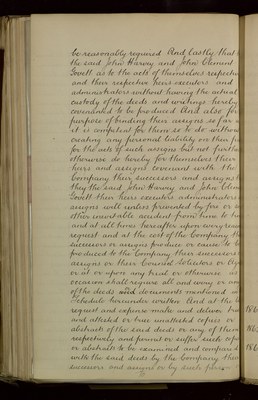 be reasonably required And Lastly that
the said John Harvey and John Clement
Govett as to the acts of themselves respectiv
and their respective heirs executors and
administrators without having the actual
custody of the deeds and writings hereby
covenanted to be produced And also for
purpose of binding their assigns so far as
it is competent for them so to do without
creating any personal liability on their pa
for the acts of such assigns but not further
otherwise do hereby for themselves their
heirs and assigns covenant with the
Company their successors and assigns
they the said John Harvey and John Clem
Govett their heirs executors administrators
assigns will unless prevented by fire or o
other inevitable accident from time to tim
and at all times thereafter upon every reas
request and at the cost of the Company th
successors or assigns produce or cause to be
produced to the Company their successors
assigns or their Counsel Solicitors or Age
or at or upon any trial or otherwise as
occasion shall require all and every or any
of the deeds and documents mentioned in
Schedule hereunder written And at the like
request and expense make and deliver tru
and attested or true unattested copies or
abstracts of the said deeds or any of them
respectively and permit or suffer such copi
or abstracts to be examined and compared
with the said deeds by the Company their
successors and assigns or by such person
186
186
186